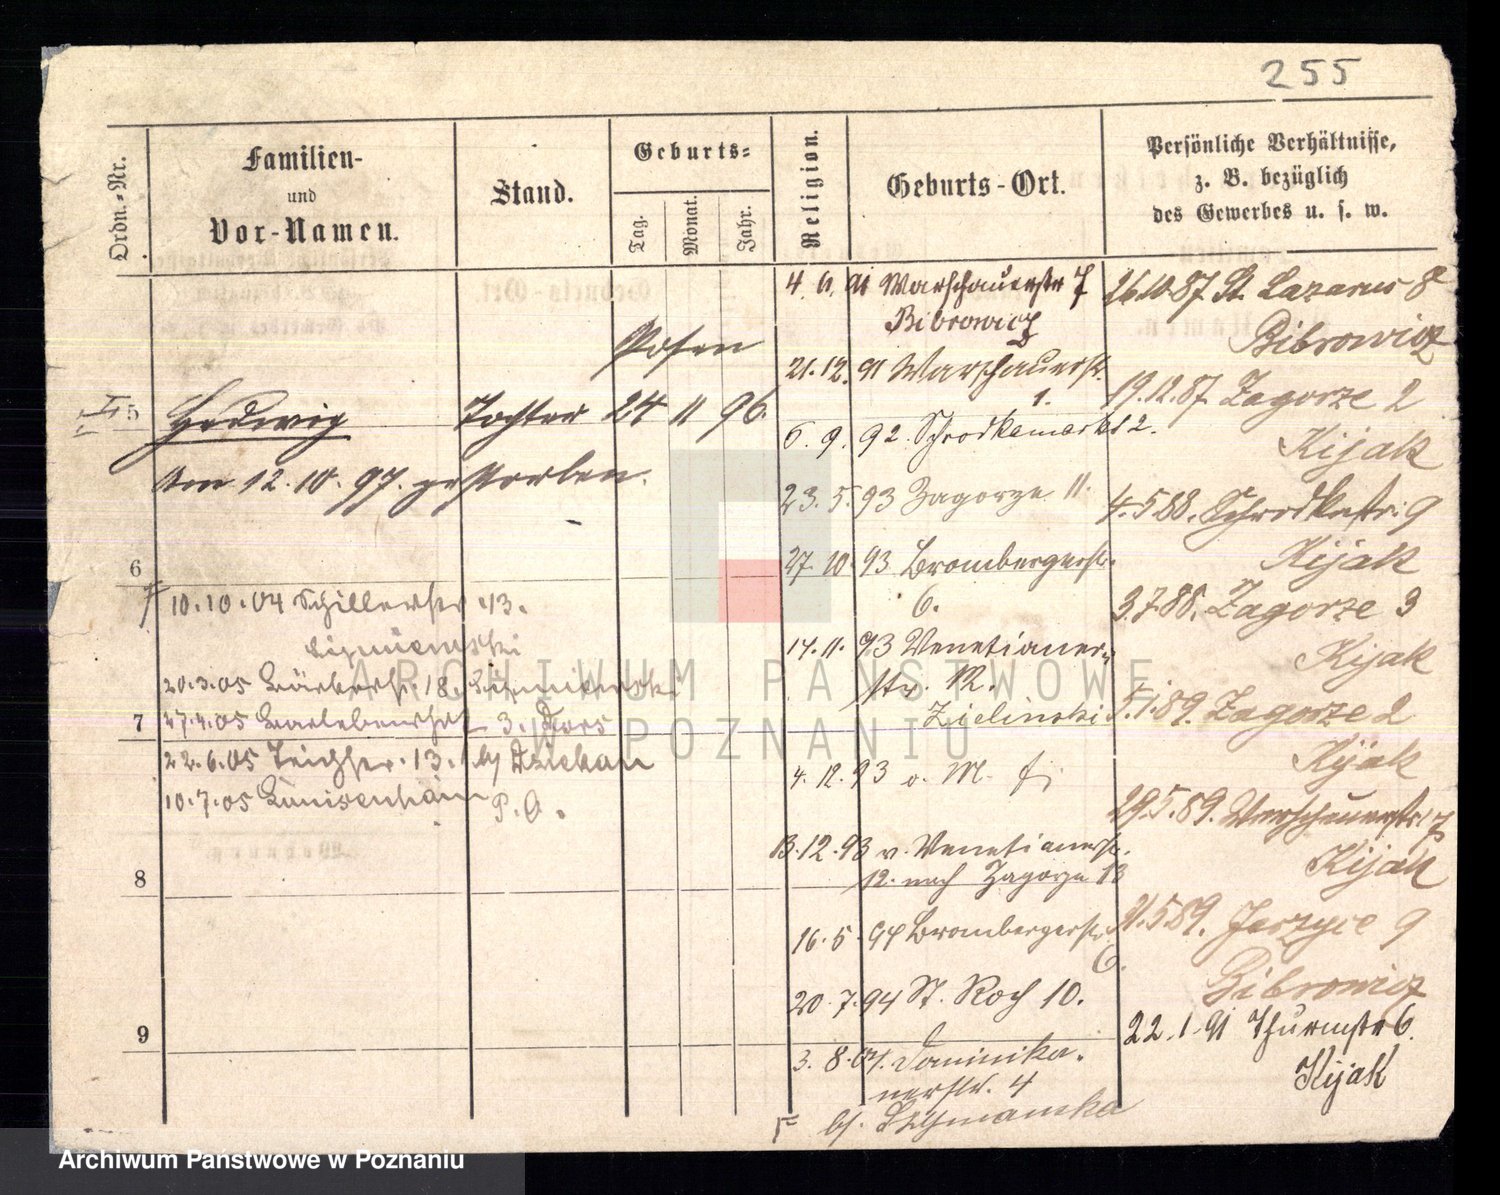 255
Ordn.-Nr.
Familien-
und
Vor-Namen.
Stand.
Geburts-
Tag.
Monat.
Jahr.
Religion.
Geburts-Ort.
Persönliche Verhältnisse,
z. B. bezüglich
des Gewerbes u. s. w.
Posen
5 Hedwig Tochter 24 11 96.
Am 12.10.97. gestorben.
6
10.10.04 Schillerstr. 13.
20.3.05 18.
7 27.4.05 3.
22.6.05 13. bj
10.7.05 Luisenhain P. O.
8
9
4. 6. 91 Warschauerstr 7
Bibrowicz
21.12.91 Warschauerstr.
1.
6. 9. 92. Schrodkamarkt 2.
23.5.93 Zagorze 11.
27.10.93 Brombergerstr.
6.
14.11.93 Venetianer-
str. 12.
Zielinski
4.12.93 v. M.
13.12.93 v. Venetianerstr.
12. nach Zagorze 13
16.5.94 Brombergerstr.
6.
20.7.94 St. Roch 10.
3.8.04. Dominika-
nerstr. 4
bj. Szymanska
26.10.87 St. Lazarus 8
Bibrowicz
19.12.87 Zagorze 2
Kijak
4.5.88. Schrodkastr. 9
Kijak
3.7.88. Zagorze 3
Kijak
5.1.89. Zagorze 2
Kijak
29.5.89. Warschauerstr. 7
Kijak
Jerzyce 9
Bibrowicz
22.1.91 Thurmstr 6.
Kijak
ARCHIWUM PAŃSTWOWE
W POZNANIU
Archiwum Państwowe w Poznaniu